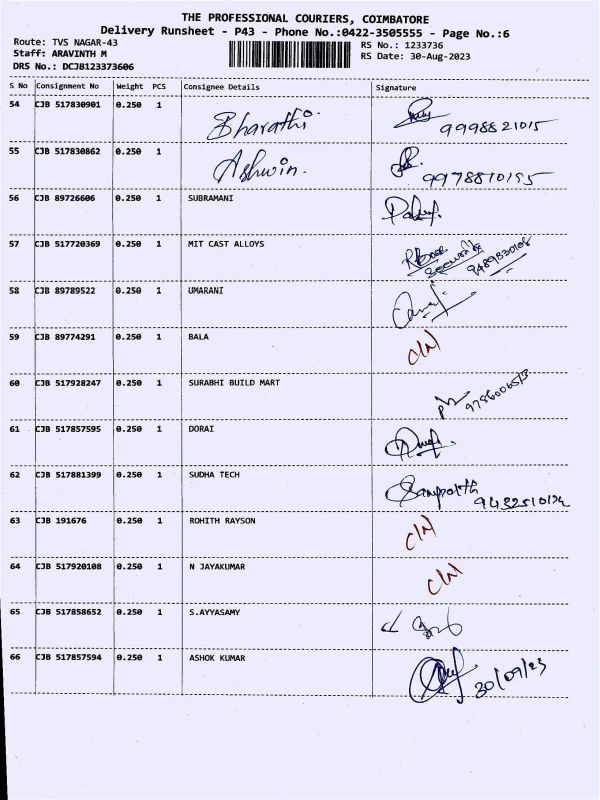 THE PROFESSIONAL COURIERS, COIMBATORE
Delivery Runsheet - P43 - Phone No.:0422-3505555 - Page No.:6
Route: TVS NAGAR-43
Staff: ARAVINTH M
DRS No.: DCJB123373606
RS No.: 1233736
RS Date: 30-Aug-2023
S No Consignment No Weight PCS Consignee Details Signature
54 CJB 517830901 0.250 1 Bharathi 9998821015
55 CJB 517830862 0.250 1 Ashwin. 9978810195
56 CJB 89726606 0.250 1 SUBRAMANI
57 CJB 517720369 0.250 1 MIT CAST ALLOYS
58 CJB 89789522 0.250 1 UMARANI
59 CJB 89774291 0.250 1 BALA
60 CJB 517928247 0.250 1 SURABHI BUILD MART
61 CJB 517857595 0.250 1 DORAI
62 CJB 517881399 0.250 1 SUDHA TECH
63 CJB 191676 0.250 1 ROHITH RAYSON
64 CJB 517920108 0.250 1 N JAYAKUMAR
65 CJB 517858652 0.250 1 S.AYYASAMY
66 CJB 517857594 0.250 1 ASHOK KUMAR 30/09/23